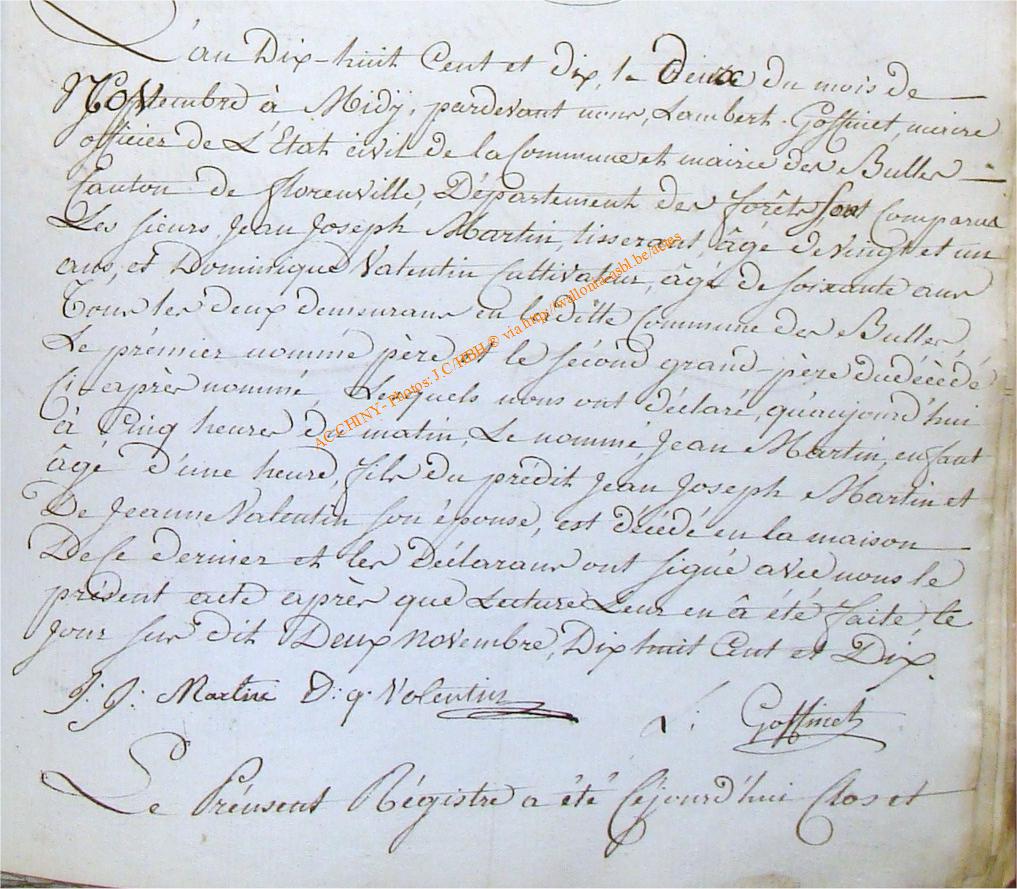 L'an Dix-huit Cent et dix, le Deux du mois de
Novembre à Midÿ, pardevant nous, Lambert Goffinet, maire
officier de L'Etat civil de la Commune et mairie des Bulles
Canton de florenville, Département des forêts sont Comparus
Les sieurs Jean Joseph Martin, tisserant, âgé de vingt et un
ans, et Dominique Valentin Cultivateur, âgé de soixante ans
Tous les deux demeurans en la ditte Commune des Bulles,
Le prémier nommé père et le sécond grand-père du décédé
Ci-après nommé, Lesquels nous ont déclaré, quaujourd'hui
à Cinq heures du matin, Le nommé, Jean Martin, enfant
âgé d'une heure, fils du prédit Jean Joseph Martin et
De Jeanne Valentin son épouse, est décédé en la maison
De Ce dernier et les Déclarans ont signé avec nous le
présent acte après que Lecture Leur en à été faite le
Jour sur dit Deux novembre, Dix huit Cent et Dix.
J: J: Martin D: q: Valentin
L: Goffinet
Le Présent Régistre a été Cejourd'hui Clos et
ACCHINY- Photos: J.C/HBH © via http://wallonia-asbl.be/actes